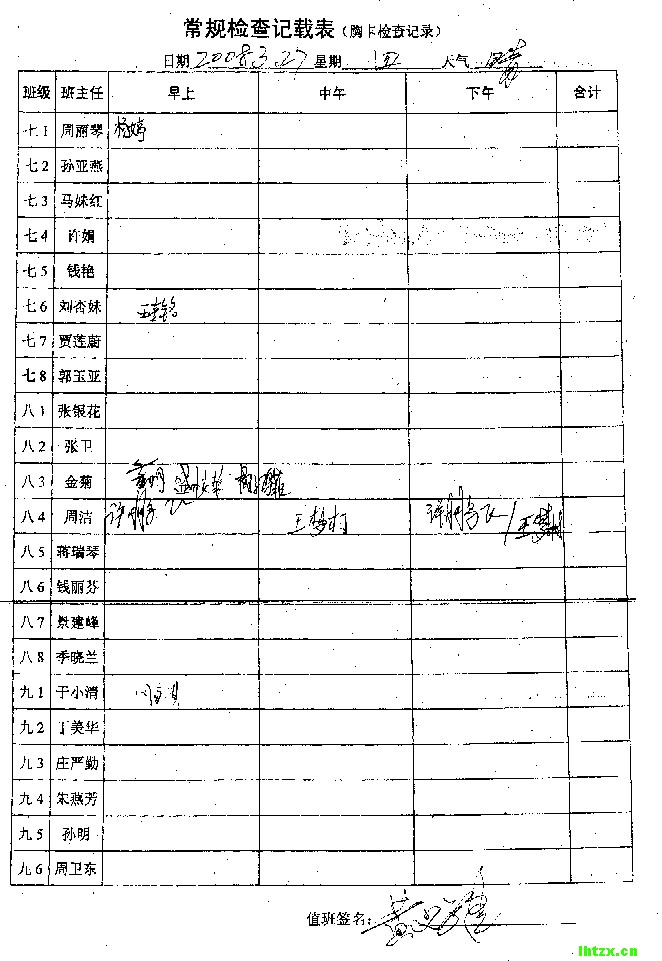 常规检查记载表（胸卡检查记录）
日期 2008.3.27 星期 四 天气
班级 班主任 早上 中午 下午 合计
七1 周丽琴 杨婷
七2 孙亚燕
七3 马妹红
七4 许娟
七5 钱艳
七6 刘杏妹
七7 贾莲蔚
七8 郭玉亚
八1 张银花
八2 张卫
八3 金菊
八4 周洁
八5 蒋瑞琴
八6 钱丽芬
八7 景建峰
八8 季晓兰
九1 于小清
九2 丁美华
九3 庄严勤
九4 朱燕芳
九5 孙明
九6 周卫东
值班签名：
lhtzx.cn